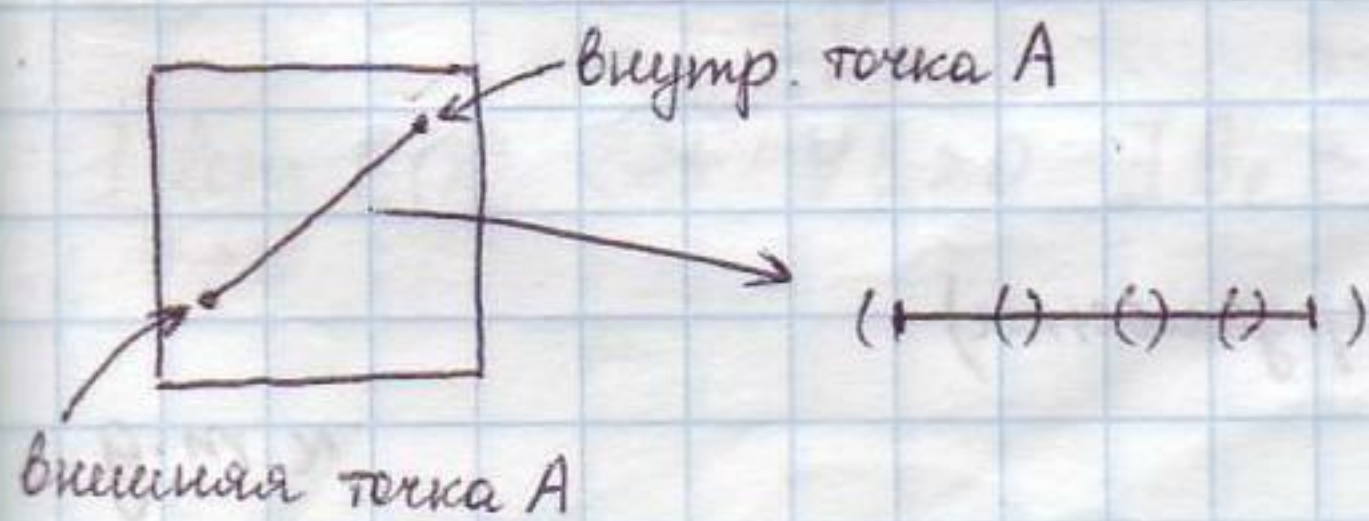 внутр. точка А
( ( ) ( ) ( ) )
внешняя точка А